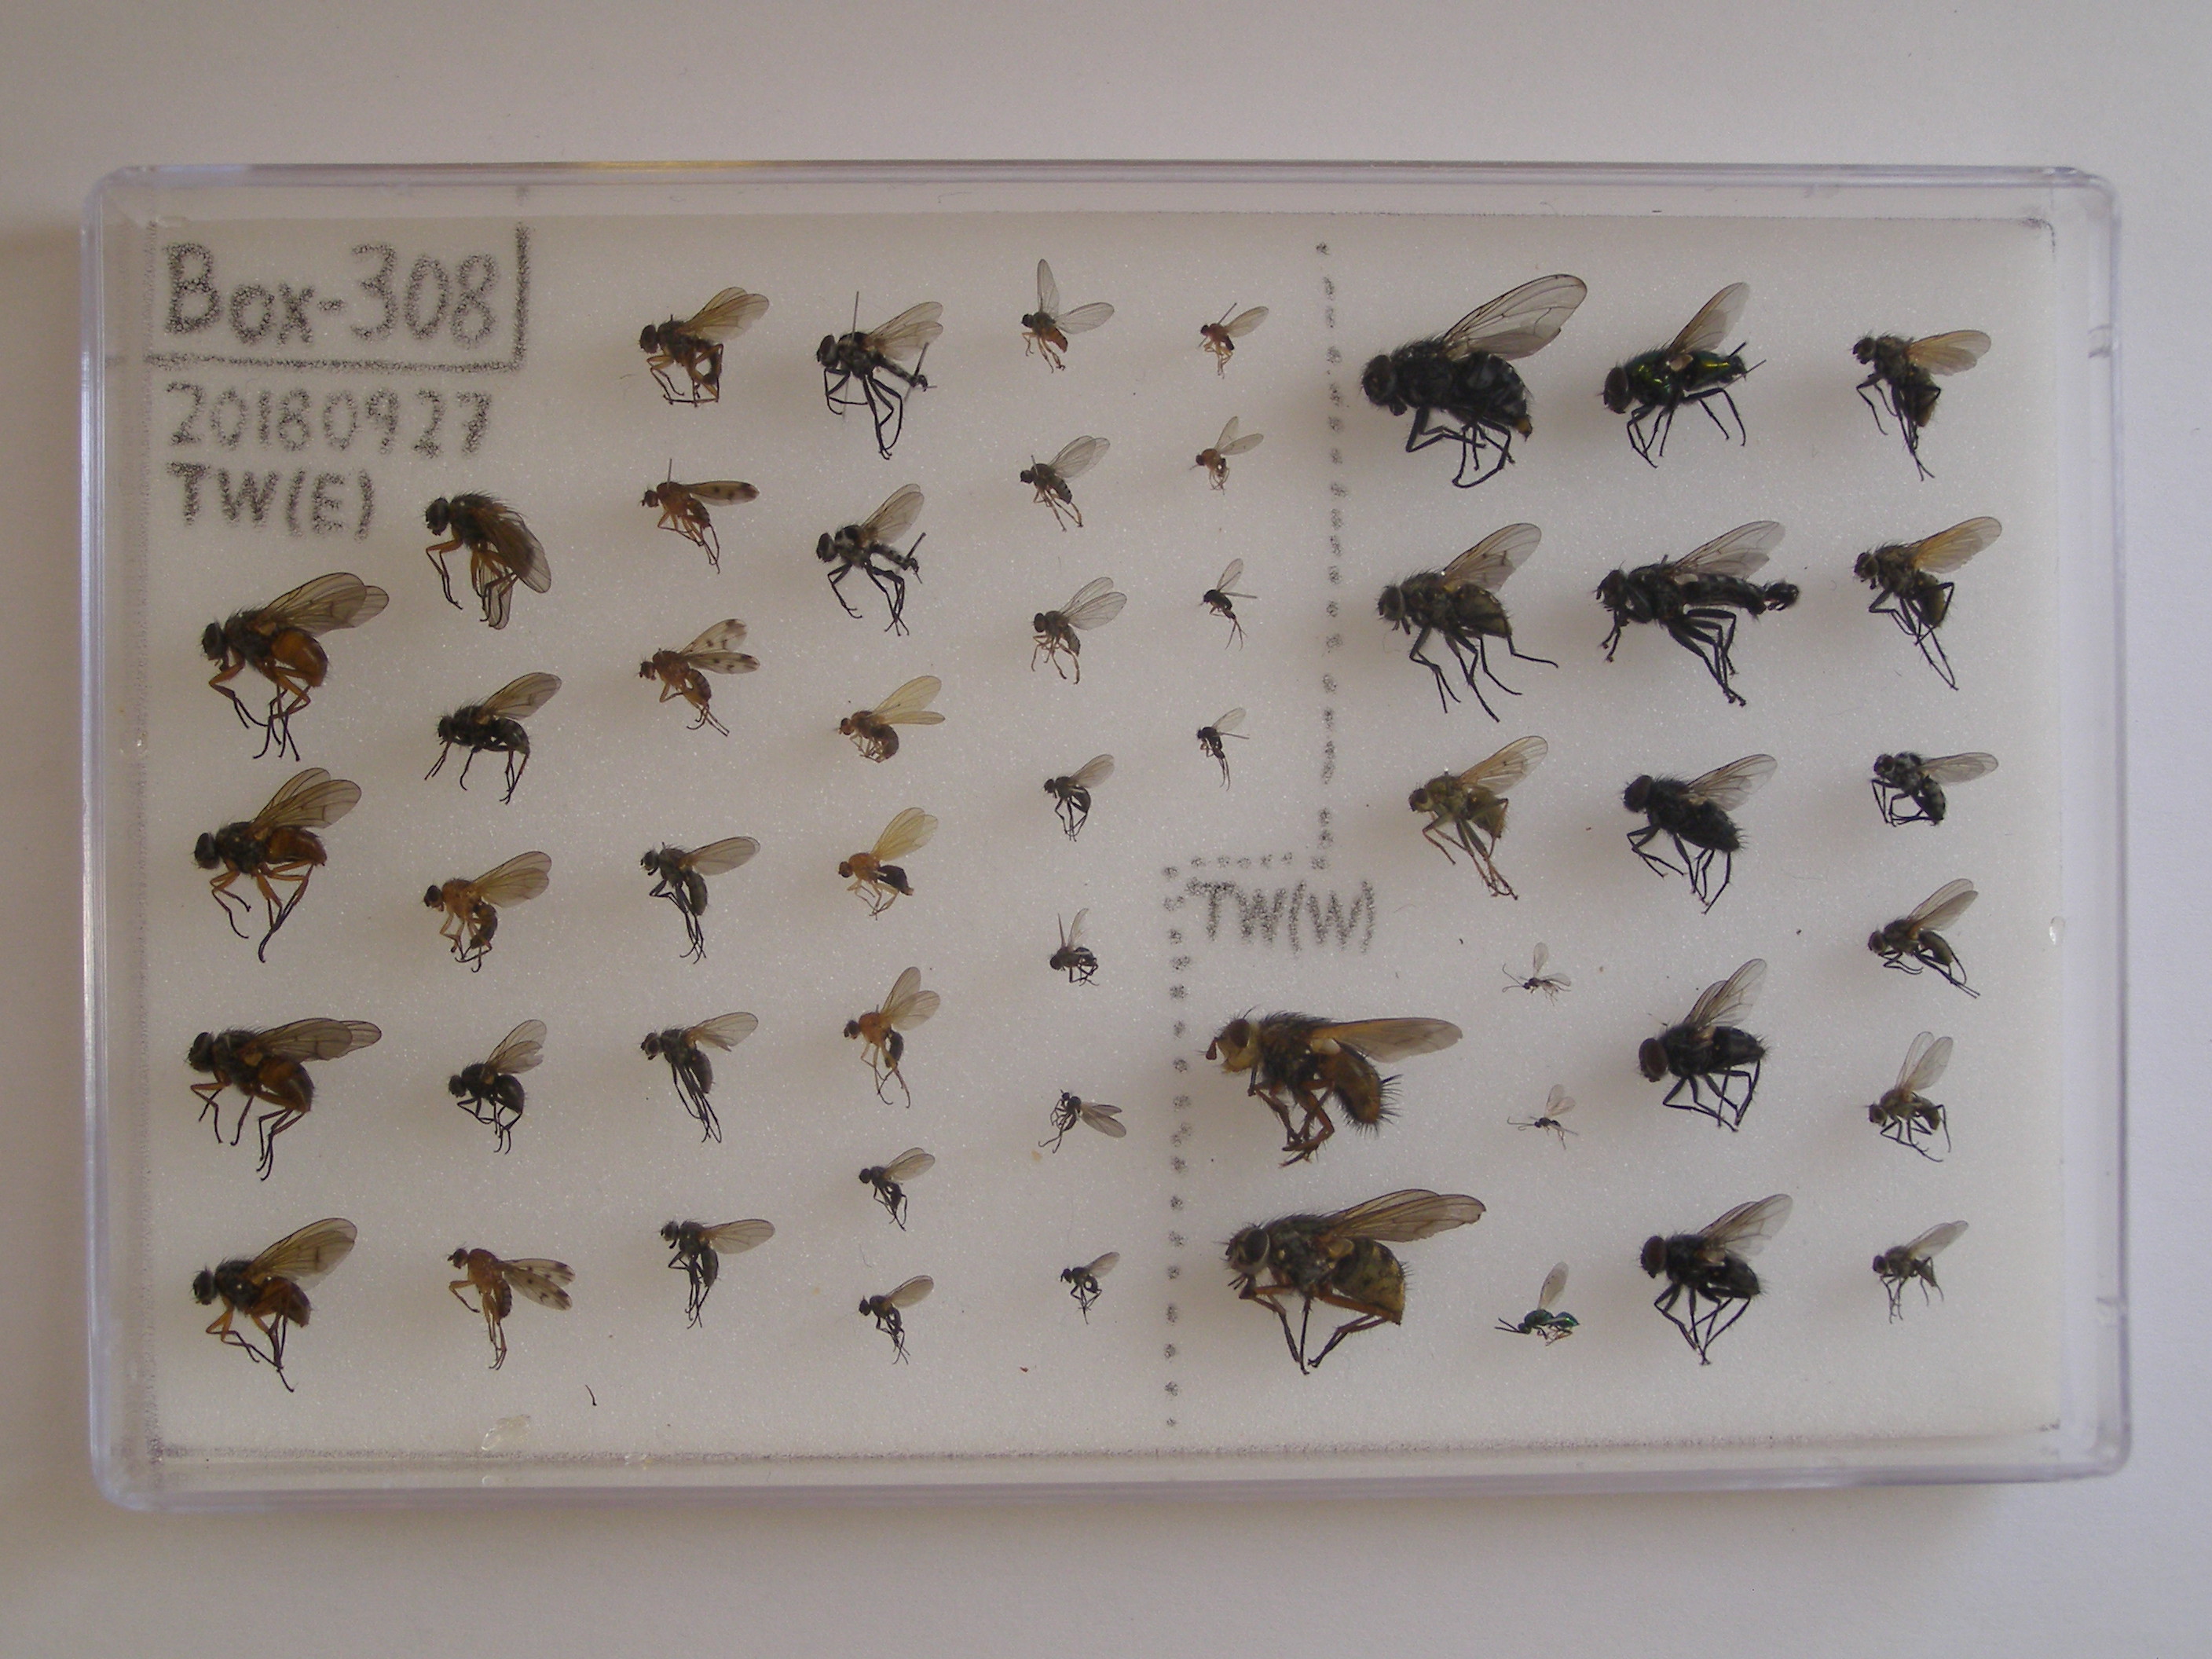 Box-308
20180927
TW(E)
TW(W)